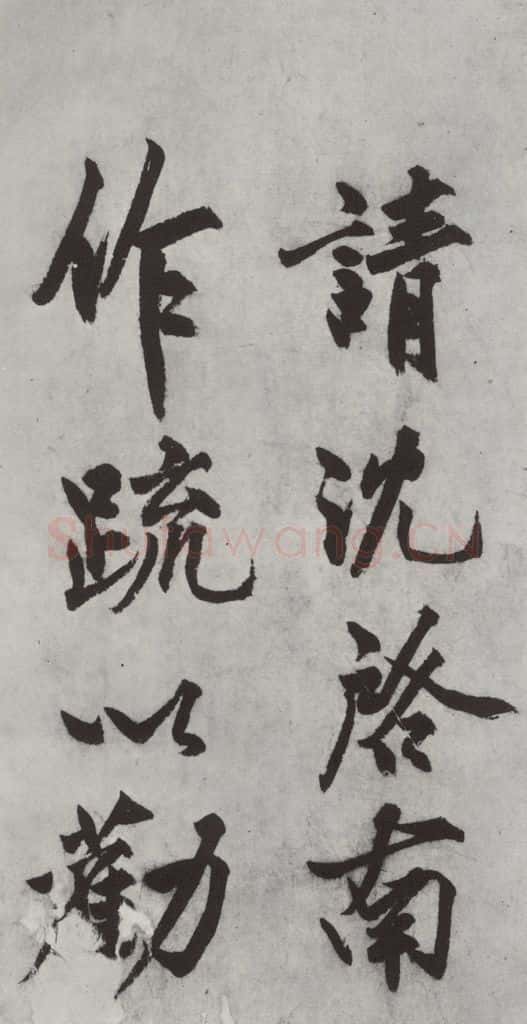 請沈啓南
作疏以勸
Shufawang.CN